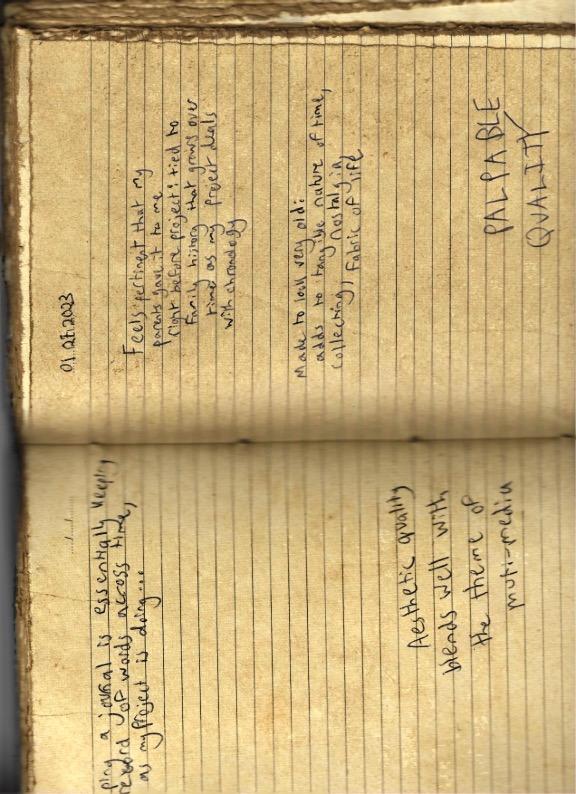 a journal is essentially keeping
record of words across time,
as my project is doing...
Aesthetic quality
blends well with
the theme of
muti-media
Feels pertinent that my
parents gave it to me
right before project; tied to
family history that grows over
time as my project deals
with chronology
Made to look very old:
adds to tangible nature of time,
collecting, nostalgia,
fabric of life
PALPABLE
QUALITY